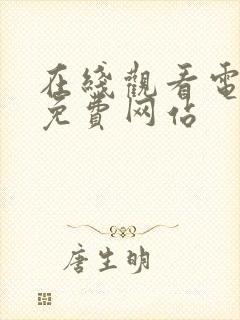 在綫觀看電
免費网佔
唐生明